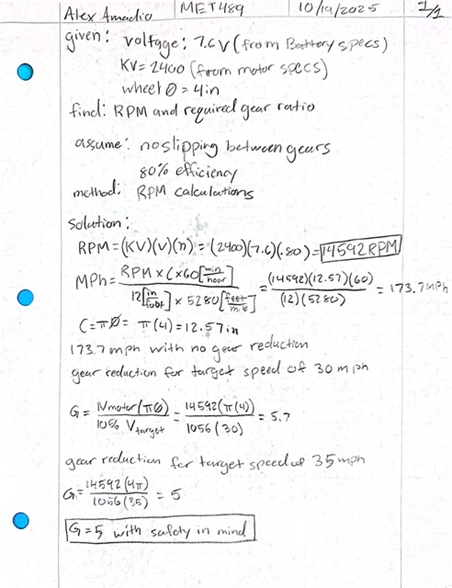 Alex Amadio MET489 10/19/2025 1/1
given: voltage: 7.6V (from Battery specs)
KV=2400 (from motor specs)
wheel Ø=4in
find: RPM and required gear ratio
assume: no slipping between gears
80% efficiency
method: RPM calculations
Solution:
RPM=(KV)(V)(n)=(2400)(7.6)(.80)=14592RPM
MPh= RPM×C×60[min/hour] / 12[in/foot]×5280[feet/mile] = (14592)(12.57)(60) / (12)(5280) = 173.7mph
C=πØ= π(4)=12.57in
173.7 mph with no gear reduction
gear reduction for target speed of 30mph
G= Nmotor(πØ) / 1056 Vtarget = 14592(π(4)) / 1056(30) = 5.7
gear reduction for target speed of 35mph
G= 14592(4π) / 1056(35) = 5
G=5 with safety in mind